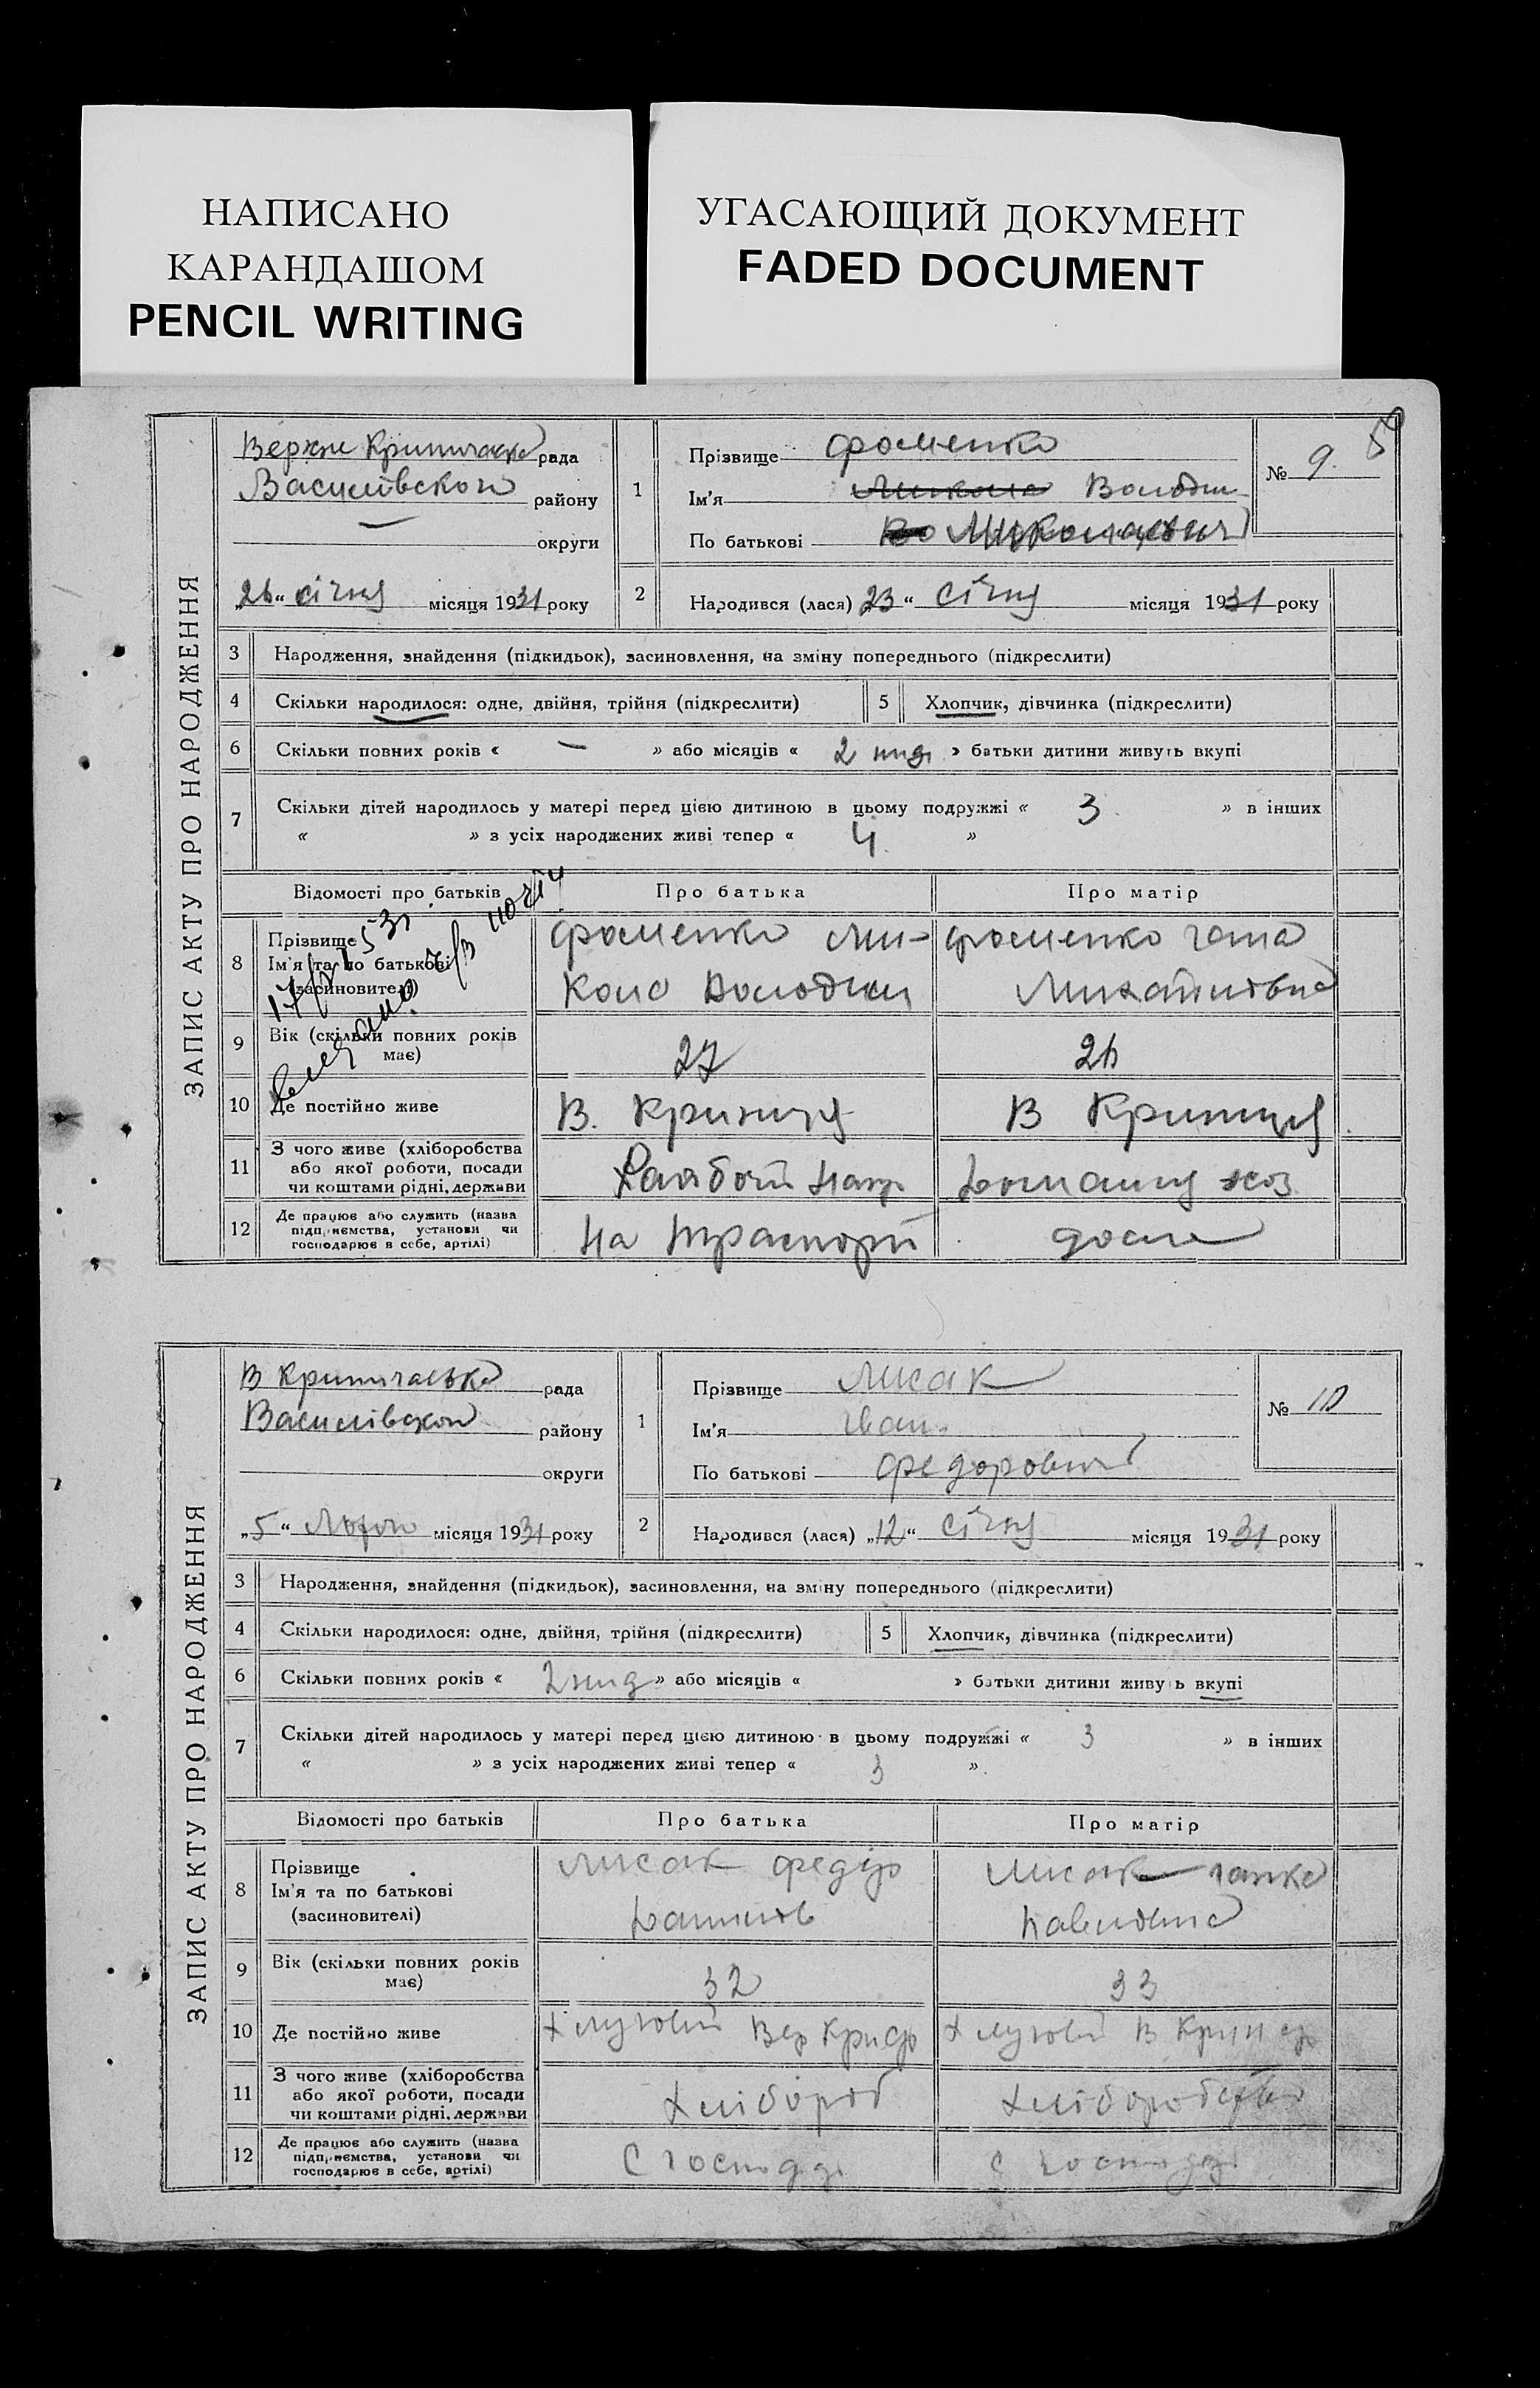 НАПИСАНО
КАРАНДАШОМ
PENCIL WRITING
УГАСАЮЩИЙ ДОКУМЕНТ
FADED DOCUMENT
ЗАПИС АКТУ ПРО НАРОДЖЕННЯ
рада
Василівського району
округи
„26“ січня місяця 1931 року
1
Прізвище Фоменко
Ім'я Микола Володим
По батькові Во Миколаєвич
№ 9.
5
2 Народився (лася) 23“ січня місяця 1931 року
3 Народження, знайдення (підкидьок), засиновлення, на зміну попереднього (підкреслити)
4 Скільки народилося: одне, двійня, трійня (підкреслити) 5 Хлопчик, дівчинка (підкреслити)
6 Скільки повних років « — » або місяців « 2 » батьки дитини живуть вкупі
7 Скільки дітей народилось у матері перед цією дитиною в цьому подружжі « 3 » в інших
« » з усіх народжених живі тепер « 4 »
Відомості про батьків Про батька Про матір
8 Прізвище Фоменко Ми- Фоменко
Ім'я та по батькові
(засновителі) кола Володим Михайловна
9 Вік (скільки повних років має) 27 26
10 Де постійно живе В. Криниця В Криниця
11 З чого живе (хліборобства
або якої роботи, посади
чи коштами рідні, держави
12 Де працює або служить (назва
підприємства, установи чи
господарює в себе, артілі) на траспорті дома
ЗАПИС АКТУ ПРО НАРОДЖЕННЯ
В Криничаська рада
Василівской району
округи
„5“ Лютого місяця 1931 року
1
Прізвище Лисак
Ім'я Іван
По батькові Федорович
№ 10
2 Народився (лася) „12“ січня місяця 1931 року
3 Народження, знайдення (підкидьок), засиновлення, на зміну попереднього (підкреслити)
4 Скільки народилося: одне, двійня, трійня (підкреслити) 5 Хлопчик, дівчинка (підкреслити)
6 Скільки повних років « 2 » або місяців « » батьки дитини живуть вкупі
7 Скільки дітей народилось у матері перед цією дитиною в цьому подружжі « 3 » в інших
« » з усіх народжених живі тепер « 3 »
Відомості про батьків Про батька Про матір
8 Прізвище Лисак Федір Лисак Ганка
Ім'я та по батькові
(засиновителі)
9 Вік (скільки повних років має) 32 33
10 Де постійно живе х Луговий Вер х Луговий В
11 З чого живе (хліборобства
або якої роботи, посади
чи коштами рідні, держави хлібороб хліборобство
12 Де працює або служить (назва
підприємства, установи чи
господарює в себе, артілі)